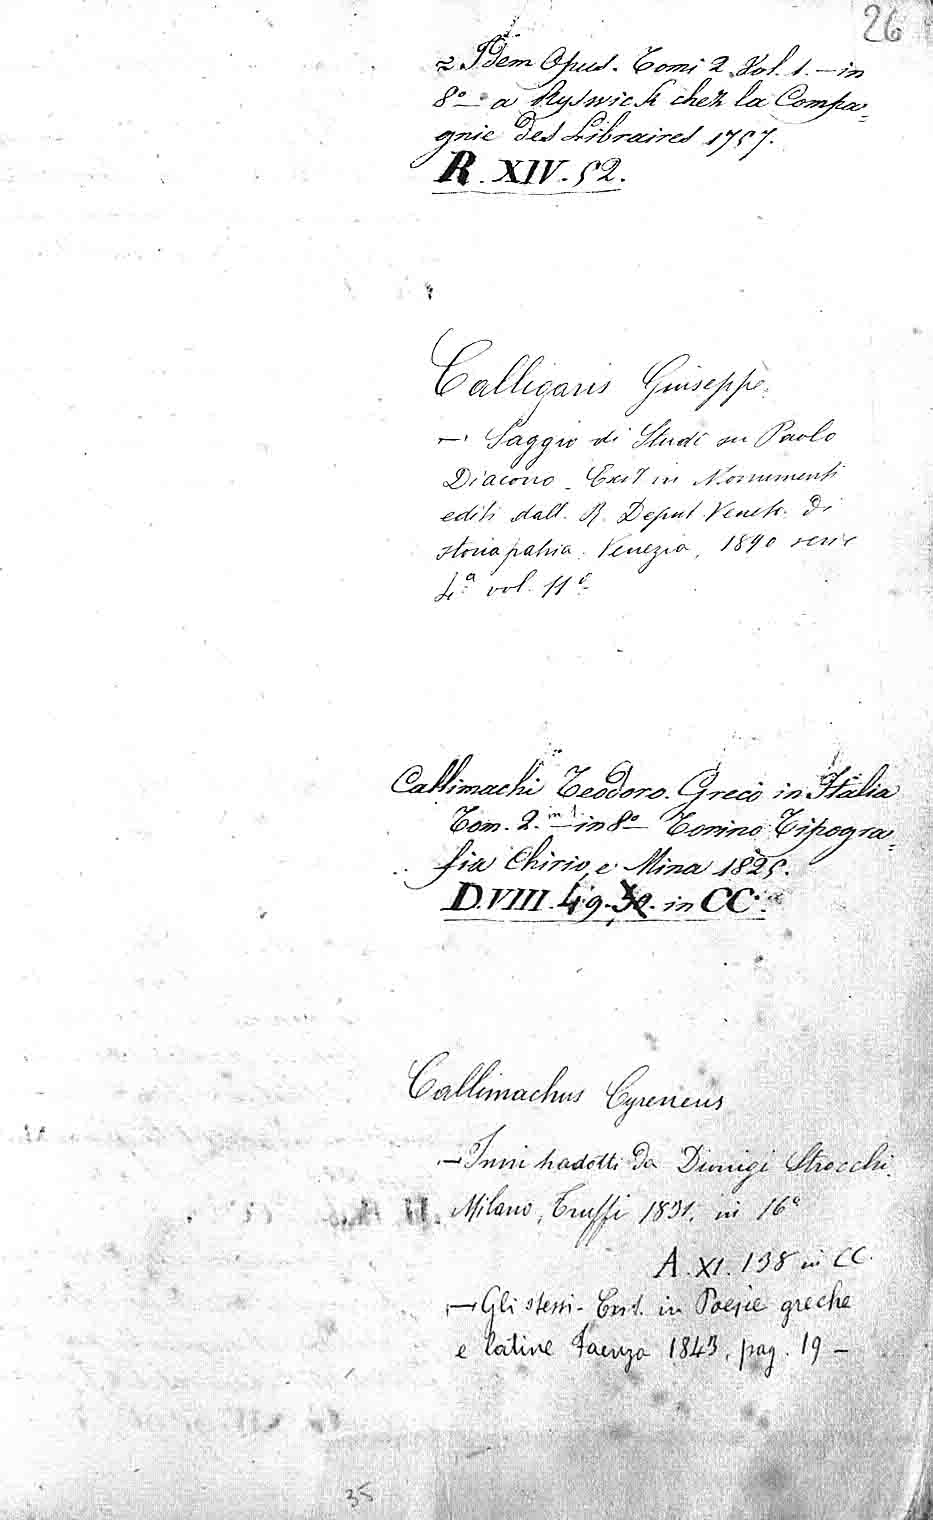 26
2 Idem Opus. Tomi 2. Vol. 1. - in
8º - a Ryswick chez la Compa=
gnie des Libraires 1757.
R. XIV. 52.
Calligaris Giuseppe.
- Saggio di Studi su Paolo
Diacono. Exst in Monumenti
editi dall. R. Deput. Veneta. di
storia patria. Venezia, 1890 serie
4.ª vol. 11º
Callimachi Teodoro. Greco in Italia
Tom. 2. in 1. in 8º - Torino Tipogra=
fia Chirio, e Mina 1825.
D. VIII. 49. in CC.
Callimachus Cyreneus
- Inni tradotti da Dionigi Strocchi.
Milano, Truffi 1831. in 16º
A. XI. 138 in CC.
- Gli stessi - Exst. in Poesie greche
e latine Faenza 1843, pag. 19 -
35